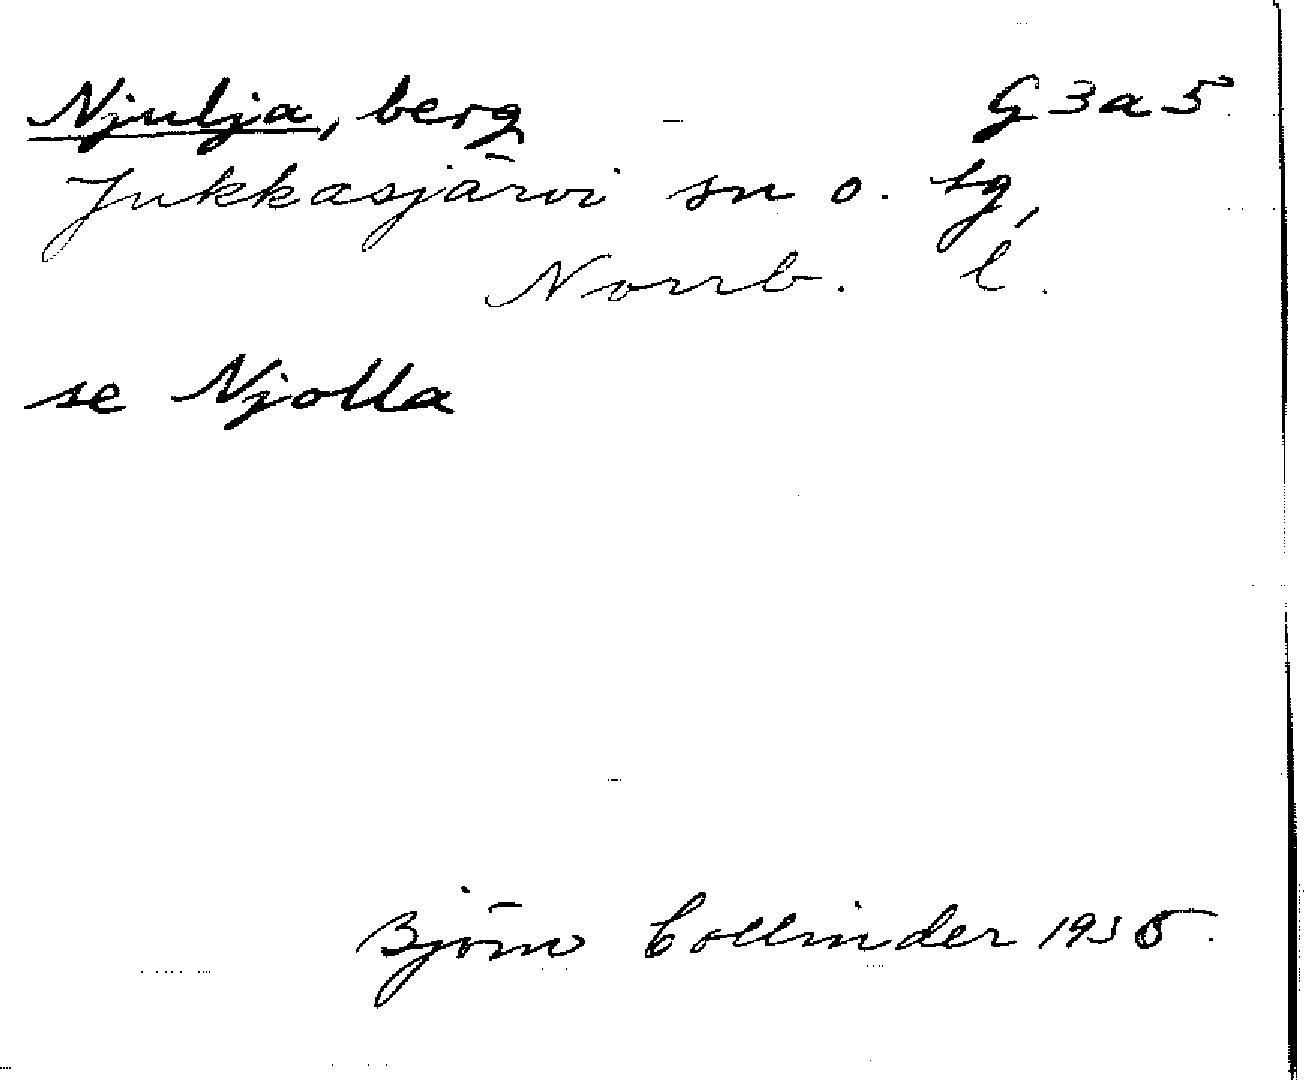 Njulja, berg G3a5
Jukkasjärvi sn o. tg,
Norrb. l.
se Njolla
Björn Collinder 1935.